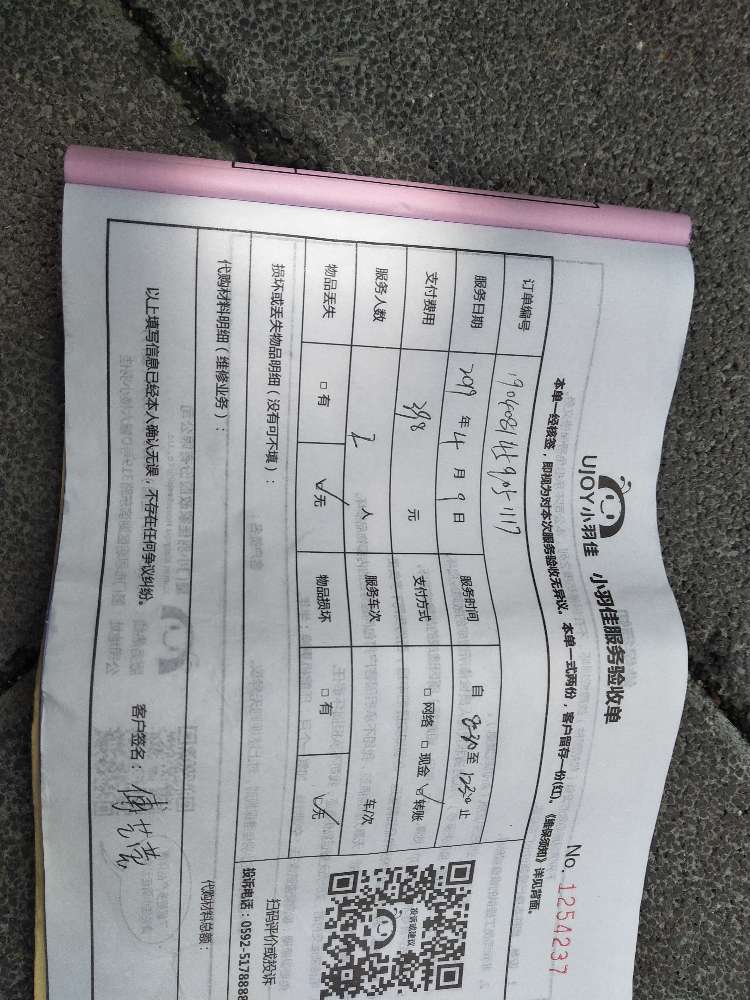 UJOY小羽佳 小羽佳服务验收单
No. 1254237
本单一经核签，即视为对本次服务验收无异议。本单一式两份，客户留存一份(红)。《维保须知》详见背面。
订单编号
服务日期 2019 年 4 月 9 日 服务时间 自 8:30 至 12:30 止
支付费用 398 元 支付方式 □网络 □现金 ☑转账
服务人数 2 人 服务车次 车/次
物品丢失 □有 ☑无 物品损坏 □有 ☑无
损坏或丢失物品明细（没有可不填）：
代购材料明细（维修业务）：
代购材料总额：
投诉或建议
扫码评价或投诉
投诉电话：0592-5178888
以上填写信息已经本人确认无误，不存在任何争议纠纷。
客户签名：